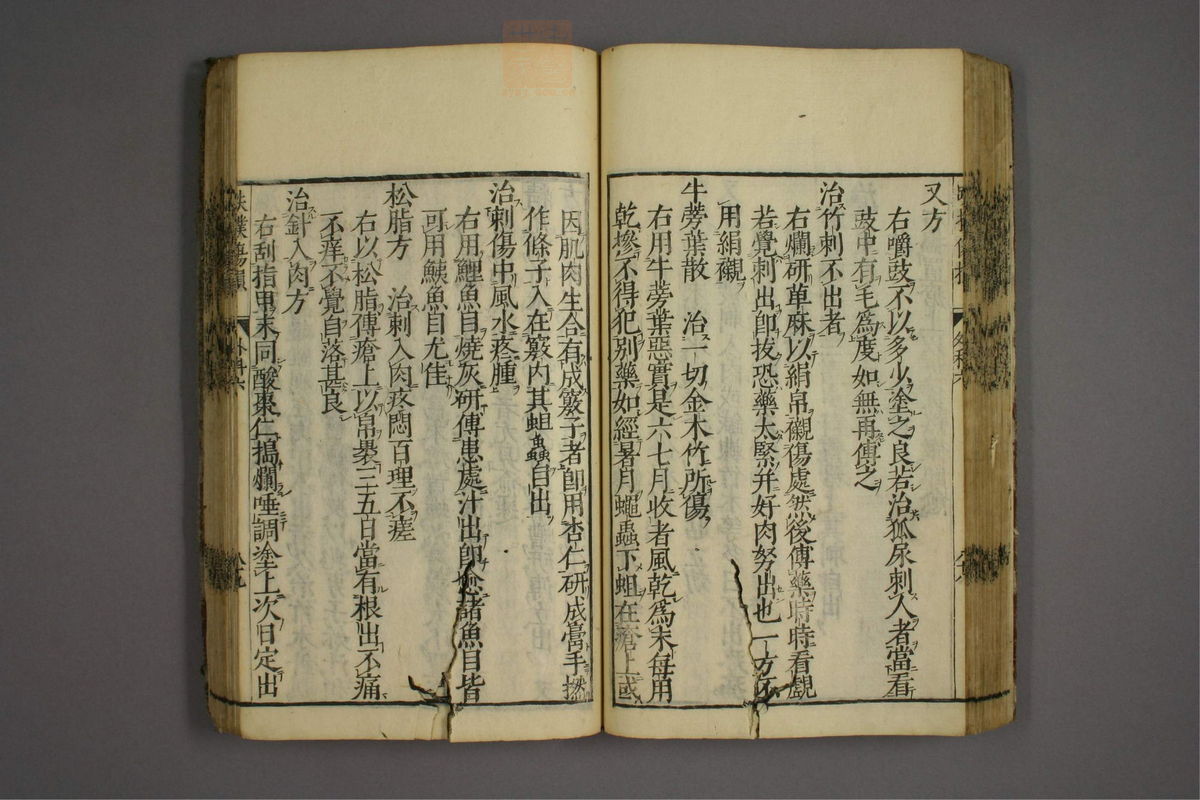 又方
右嚼豉不以多少塗之良若治狐尿刺人者當看
豉中有毛爲度如無再傅之
治竹刺不出者
右爛研萆麻以絹帛襯傷處然後傅藥時時看覷
若覺刺出卽拔恐藥太緊幷好肉努出也一方不
用絹襯
牛蒡葉散　治一切金木竹所傷
右用牛蒡葉惡實是六七月收者風乾爲末每用
乾摻不得犯別藥如經暑月蠅蟲下蛆在瘡上或
因肌肉生合有成竅子者卽用杏仁研成膏手撚
作條子入在竅内其蛆蟲自出
治刺傷中風水疼腫
右用鯉魚目燒灰研傅患處汁出卽愈諸魚目皆
可用鯇魚目尤佳
松脂方　治刺入肉疼悶百理不瘥
右以松脂傅瘡上以帛裹三五日當有根出不痛
不痒不覺自落甚良
治針入肉方
右刮指甲末同酸棗仁搗爛唾調塗上次日定出
跌撲傷損　外科六